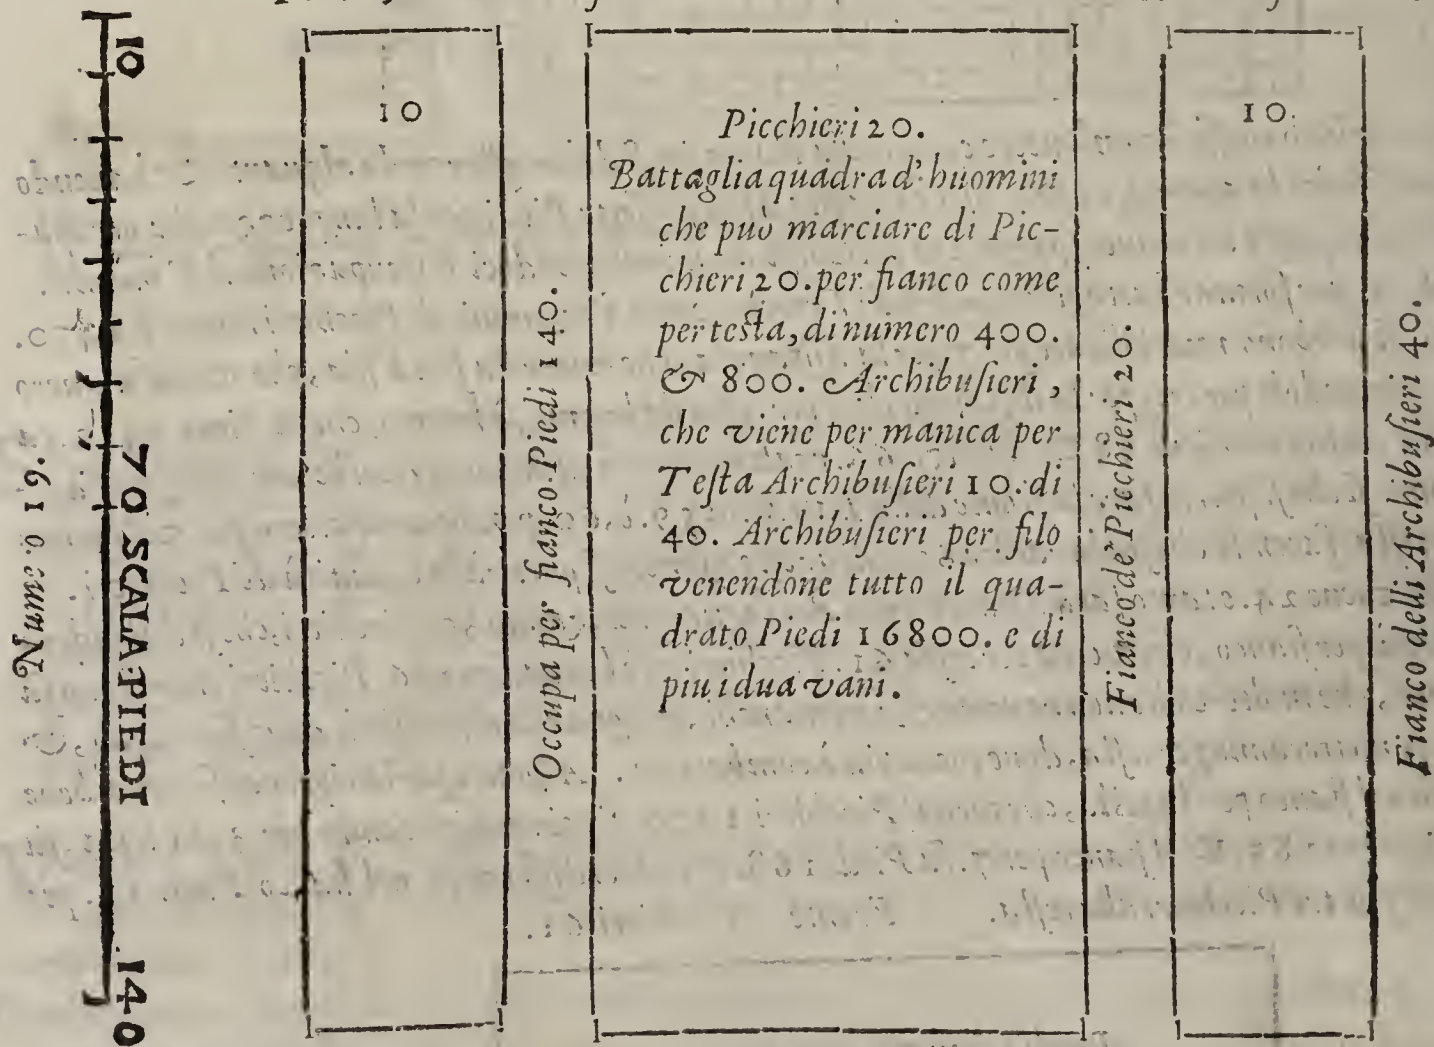 10
70 SCALA PIEDI
140
Nume o 16.
10
Occupa per fianco Piedi 140.
Picchieri 20.
Battaglia quadra d'huomini
che può marciare di Pic-
chieri 20. per fianco come
per testa, di numero 400.
& 800. Archibusieri,
che viene per manica per
Testa Archibusieri 10. di
40. Archibusieri per filo
venendone tutto il qua-
drato Piedi 16800. e di
piu i dua vani.
Fianco de' Picchieri 20.
10.
Fianco delli Archibusieri 40.